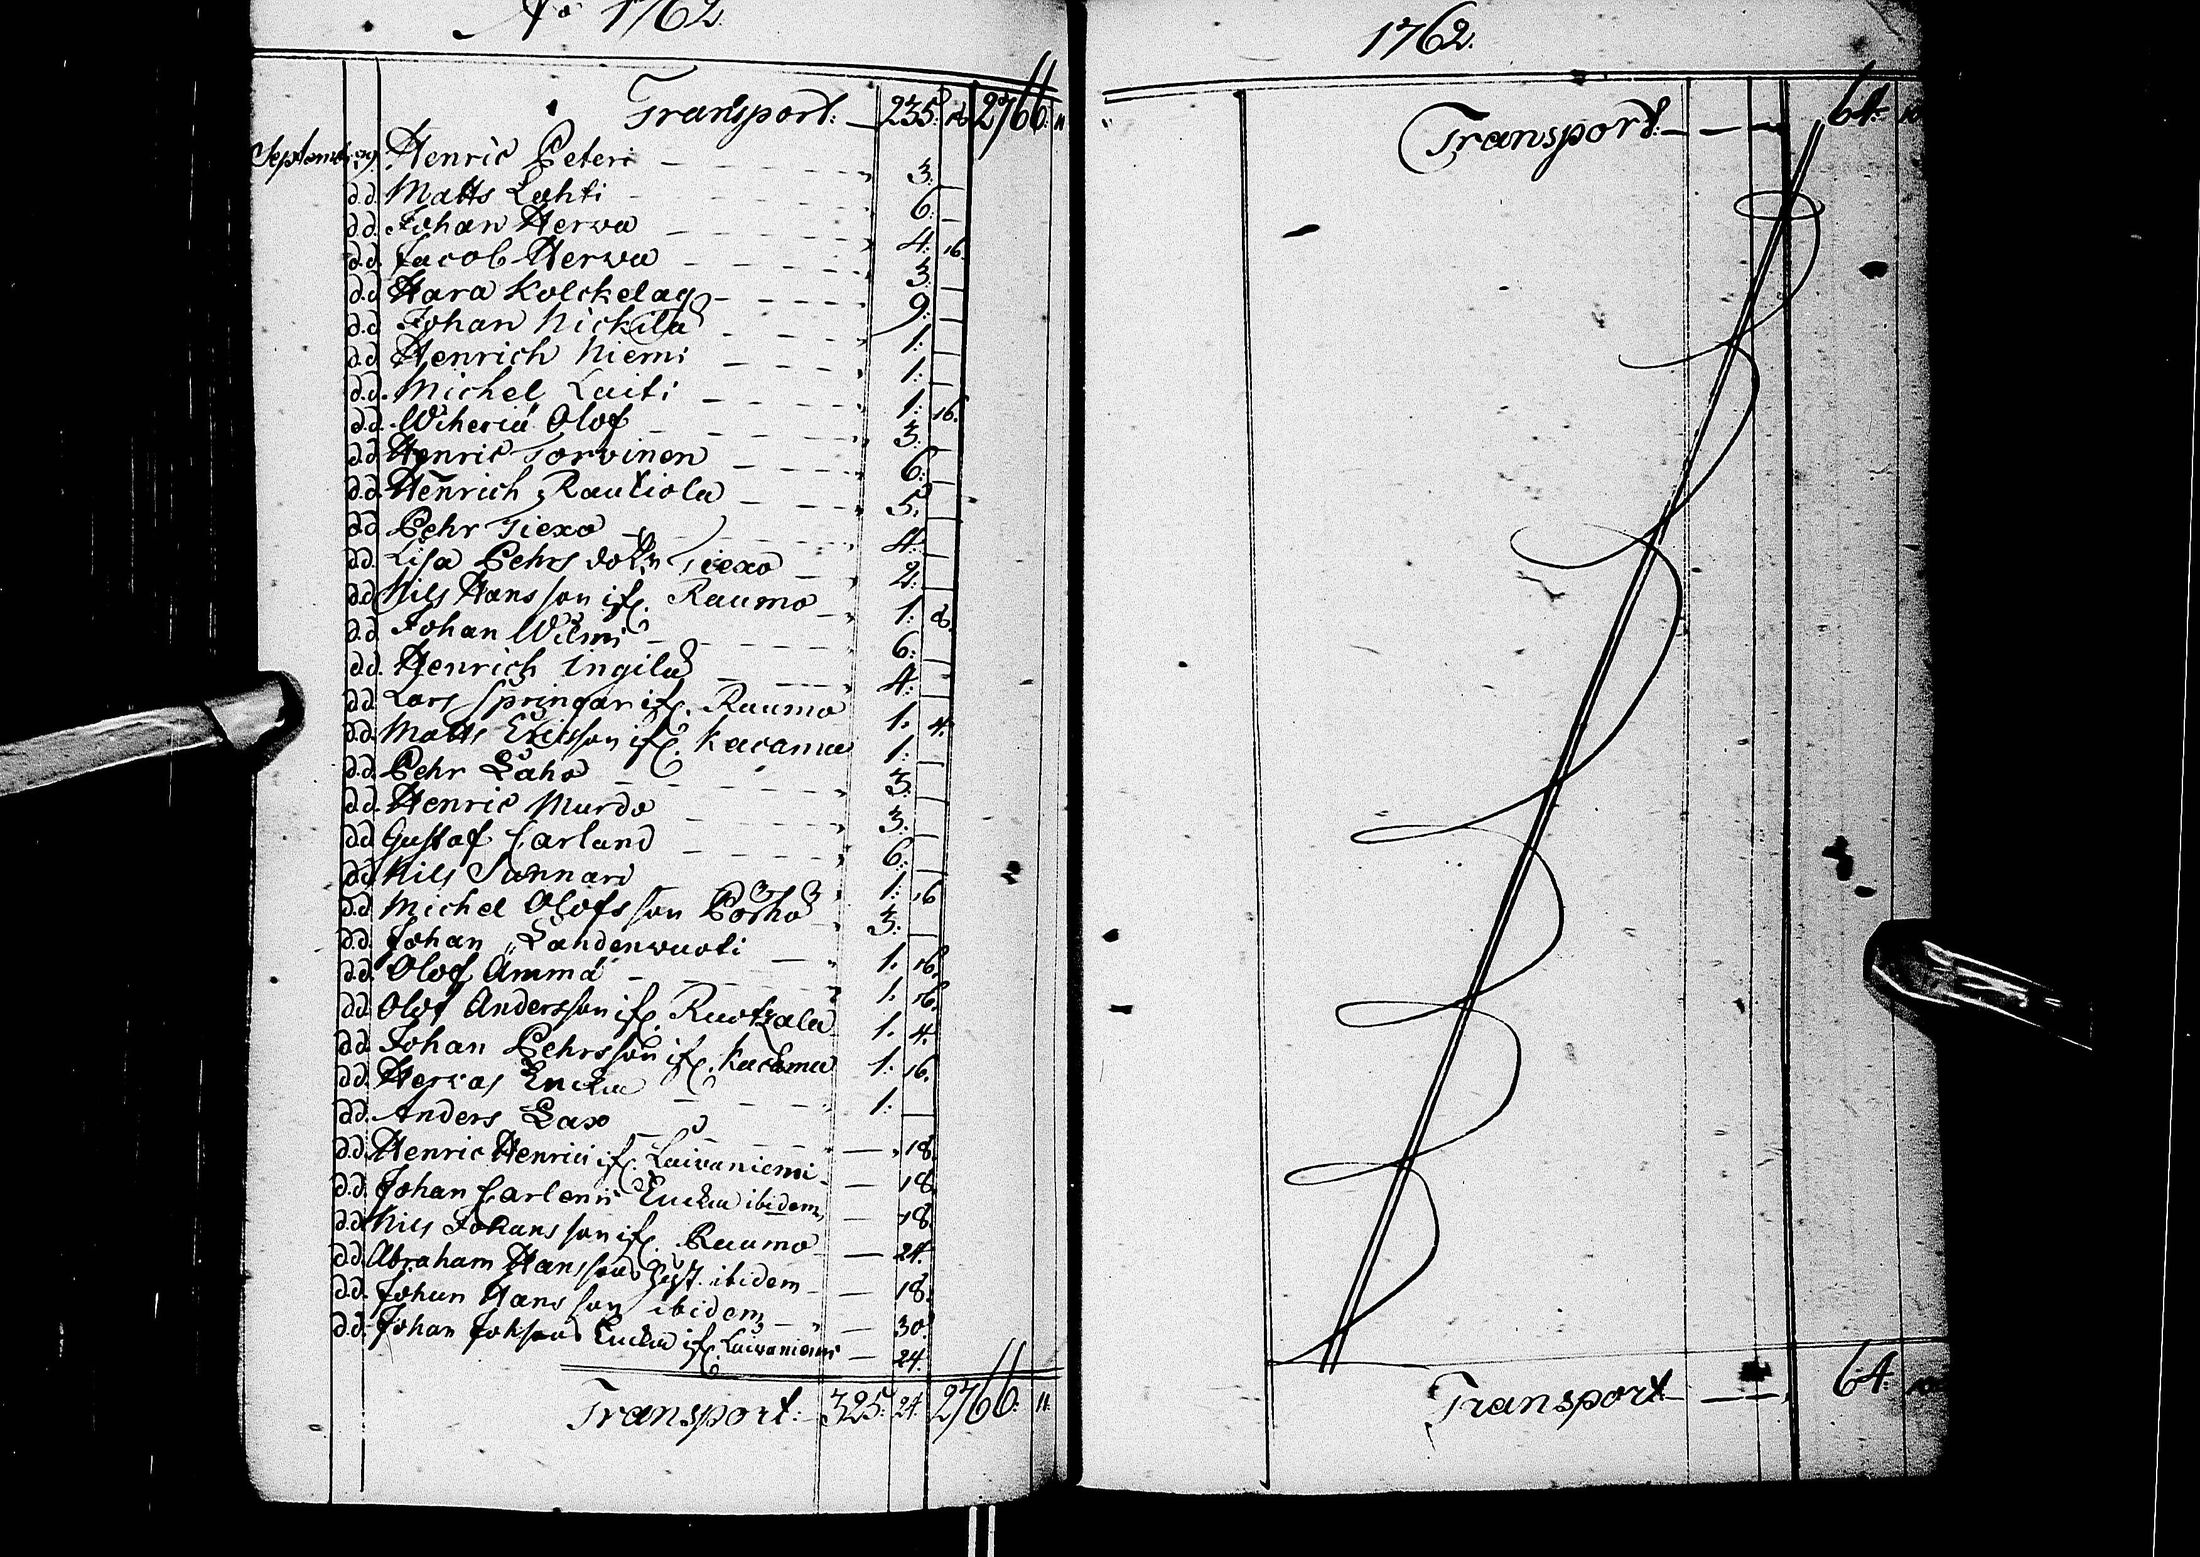 Ao 1762.
Transport: 235. 16 2766: 11
Septemb: 29. Henric Peteri 3. —
d.d. Matts Lahti 6. —
d.d. Johan Herva 4. 16.
d.d. Jacob Herva 3. —
d.d. Hara Kolckelag 9. —
d.d. Johan Nickilä 1. —
d.d. Henrich Niemi 1. —
d.d. Michel Laiti 1. 16.
d.d. Wiheriä Olof 3. —
d.d. Henric Torvinen 6. —
d.d. Henrich Rautiola 5. —
d.d. Pehr Tiexo 4. —
d.d. Lisa Pehrs dottr Tiexo 2. —
d.d. Nils Hansson if. Raumo 1. 8.
d.d. Johan Wilmi 6. —
d.d. Henrich Ingilä 4. —
d.d. Lars Springar if. Raumo 1. 4.
d.d. Matts Ericsson if. Kacama 1. —
d.d. Pehr Laho 3. —
d.d. Henric Murdo 3. —
d.d. Gustaf Carland 6. —
d.d. Nils Sunnari 1. 16
d.d. Michel Olofsson Pörhö 3. —
d.d. Johan Landenvuoti 1. 16.
d.d. Olof Ämmä 1. 16.
d.d. Olof Andersson if. Ruotzala 1. 4.
d.d. Johan Pehrsson if. Kacama 1. 16.
d.d. Hervas Enckia 1. —
d.d. Anders Lax — 18.
d.d. Henric Henrici if. Laivaniemi — 18.
d.d. Johan Carlenii Enckia ibidem — 18.
d.d. Nils Johansson if. Raumo — 24.
d.d. Abraham Hansson ibidem — 18.
d.d. Johan Hansson ibidem — 30.
d.d. Johan Johsson Enckia if. Laivaniemi — 24.
Transport: 325: 24. 2766: 11.
1762.
Transport: 64: 10
Transport 64: 10